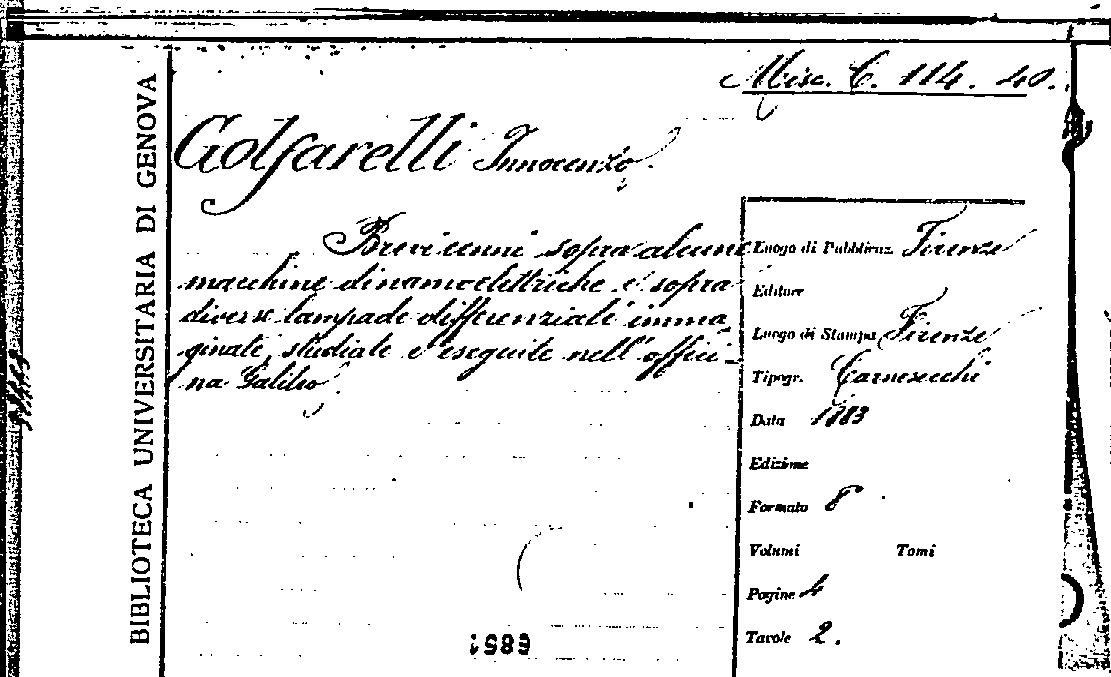 Misc. C. 114. 40.
BIBLIOTECA UNIVERSITARIA DI GENOVA
Golfarelli Innocenzo.
Brevi cenni sopra alcune
macchine dinamoelettriche e sopra
diverse lampade differenziali imma
ginate, studiate e eseguite nell'offici-
na Galileo.
Luogo di Pubblicaz. Firenze
Editore
Luogo di Stampa Firenze
Tipogr. Carnesecchi
Data 1883
Edizione
Formato 8º
Volumi Tomi
Pagine 4
Tavole 2.